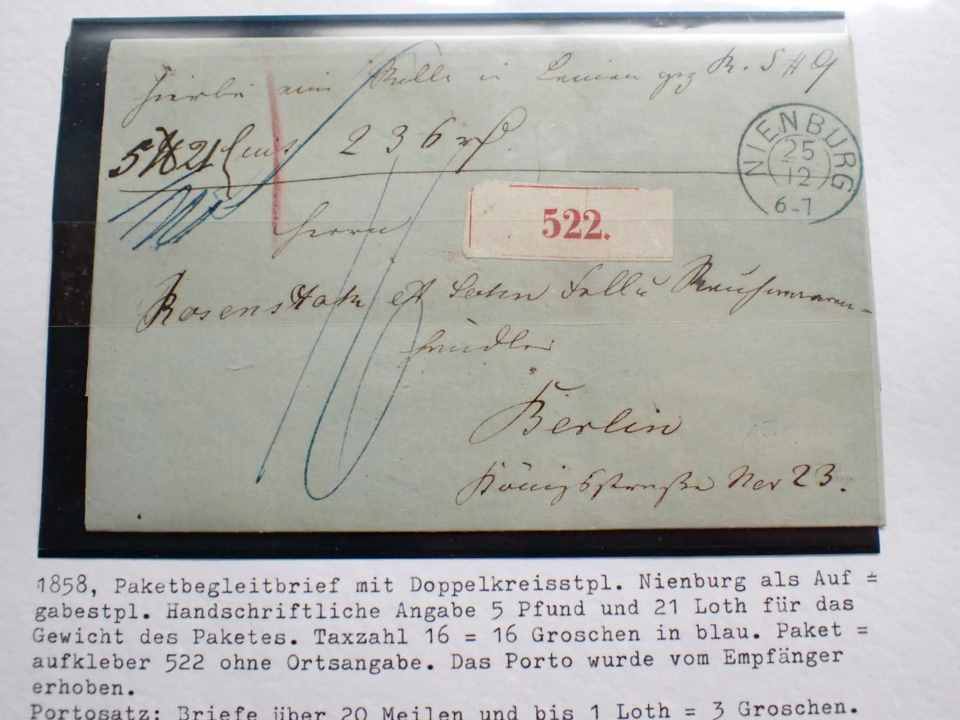 Hierbei eine Rolle in Leinen gez R. S # 9
5 ℔ 21 mit 236 rℓ.
NIENBURG
25
12
6-7
522.
Herrn
Rosenstock et Sohn Fell u Rauchwaaren-
händler
16
Berlin
Königsstraße Nro 23.
1858, Paketbegleitbrief mit Doppelkreisstpl. Nienburg als Auf =
gabestpl. Handschriftliche Angabe 5 Pfund und 21 Loth für das
Gewicht des Paketes. Taxzahl 16 = 16 Groschen in blau. Paket =
aufkleber 522 ohne Ortsangabe. Das Porto wurde vom Empfänger
erhoben.
Portosatz: Briefe über 20 Meilen und bis 1 Loth = 3 Groschen.